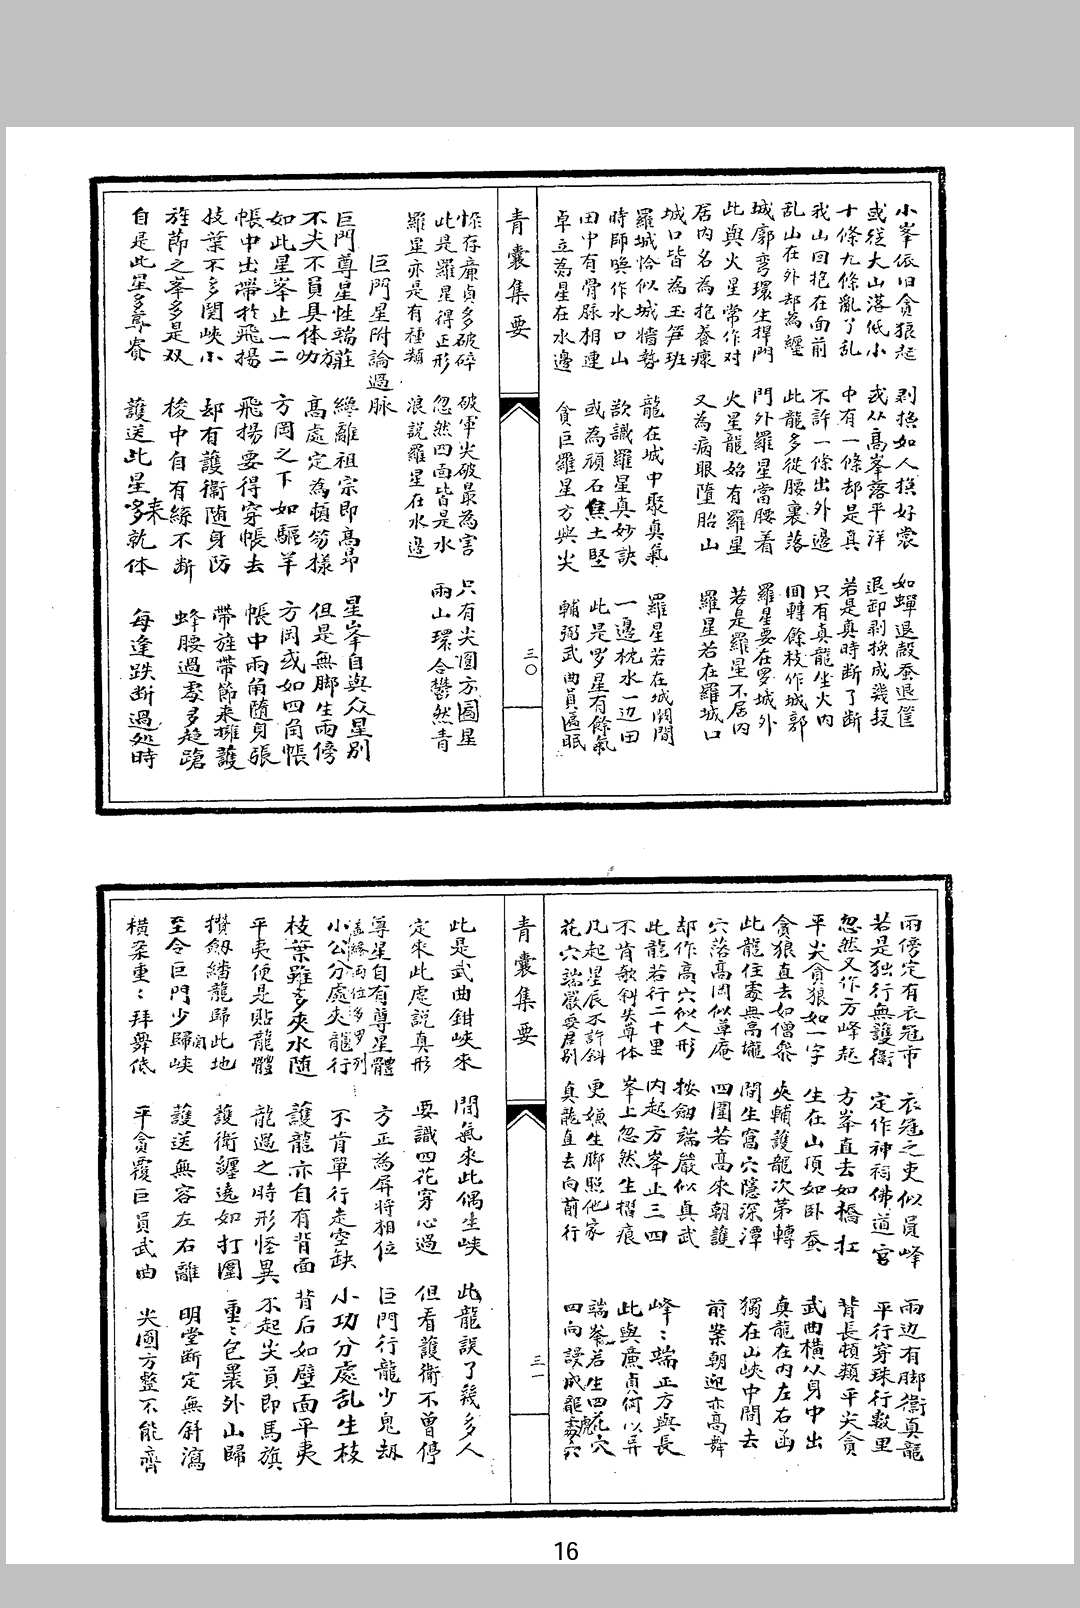 小峯依旧貪狼起 剥換如人換好裳 如蟬退殼蚕退筐
或從大山落低小 或从高峯落平洋 退卸剥換成幾段
十條九條亂了乱 中有一條却是真 若是真時断了断
我山囬抱在面前 不許一條出外邊 只有真龍坐火内
乱山在外却為纏 此龍多從腰裏落 囬轉餘枝作城郭
城廓弯環生捍門 門外羅星當腰着 羅星要在罗城外
此與火星常作对 火星龍始有羅星 若是羅星不居内
居内名為抱養瘝 又為病眼墮胎山 羅星若在羅城口
城口皆為玉笋班
羅城恰似城墻勢 龍在城中聚真氣 羅星若在城闕間
時師喚作水口山 欲識羅星真妙訣 一邊枕水一边田
田中有骨脉相連 或為頑石焦土堅 此是罗星有餘氣
卓立為星在水邊 貪巨羅星方與尖 輔弼武曲員匾眠
青囊集要
三〇
惟存廉貞多破碎 破軍尖破最為害 只有尖圓方匾星
此是羅星得正形 忽然四面皆是水 兩山環合鬱然青
羅星亦是有種類 浪説羅星在水邊
巨門星附論過脉
巨門尊星性端莊 纔離祖宗即高昂 星峯自與众星别
不尖不員具体方 高處定為頓笏様 但是無脚生兩傍
如此星峯止一二 方岡之下如驅羊 方岡或如四角帳
帳中出帶於飛揚 飛揚要得穿帳去 帳中兩角隨身張
枝葉不多関峽小 却有護衛随身防 帶旌帶節来擁護
旌節之峯多是双 梭中自有絲不断 蜂腰過處多趋蹌
自是此星多尊貴 護送此星來就体 每逢跌断過処時
兩傍定有衣冠市 衣冠之吏似員峰 兩边有脚衛真龍
若是独行無護衛 定作神祠佛道宮 平行穿珠行數里
忽然又作方峰起 方峯直去如橋杠 背長頓頭平尖貪
平尖貪狼如一字 生在山頂如卧蚕 武曲横从身中出
貪狼直去如僧參 夾輔護龍次第轉 真龍在内左右函
此龍住處無高壠 間生窩穴隱深潭 獨在山峽中間去
穴落高岡似草庵 四圍若高來朝護 前案朝迎亦高舞
却作高穴似人形 按劍端嚴似真武
此龍若行二十里 内起方峯止三四 峰〻端正方與長
不肯欹斜失尊体 峯上忽然生摺痕 此與廉貞何以异
凡起星辰不許斜 更嫌生脚照他家 端峯若生四花穴
花穴端嚴要君别 真龍直去向前行 四向謾成龍虎穴
青囊集要
三一
此是武曲鉗峽來 間氣來此偶生峽 此龍誤了幾多人
定來此處説真形 要識四花穿心過 但看護衛不曾停
尊星自有尊星體 方正為屏將相位 巨門行龍少鬼刼
蓋緣兩位多羅列
小公分處夾龍行 不肯單行走空缺 小功分處乱生枝
枝葉雖多夾水随 護龍亦自有背面 背后如壁面平夷
平夷便是貼龍體 龍過之時形怪異 不起尖員即馬旗
攢劍蟠龍歸此地 護衛纏遶如打圍 重〻包裹外山歸
至令巨門少歸峽 護送無容左右離 明堂斷定無斜瀉
横朶重〻拜舞低 平貪覆巨員武曲 尖圓方整不能齊
16